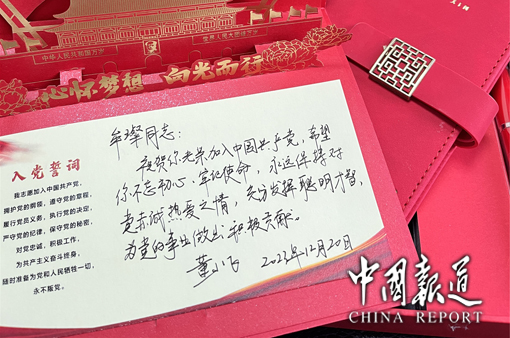 中华人民共和国万岁
世界人民大团结万岁
心怀梦想 向光而行
入党誓词
我志愿加入中国共产党,
拥护党的纲领,遵守党的章程,
履行党员义务,执行党的决定,
严守党的纪律,保守党的秘密,
对党忠诚,积极工作,
为共产主义奋斗终身,
随时准备为党和人民牺牲一切,
永不叛党。
牟璨同志:
祝贺你光荣加入中国共产党,希望
你不忘初心,牢记使命,永远保持对
党赤诚热爱之情,充分发挥聪明才智,
为党的事业做出积极贡献。
2023年12月20日
中国报道
CHINA REPORT